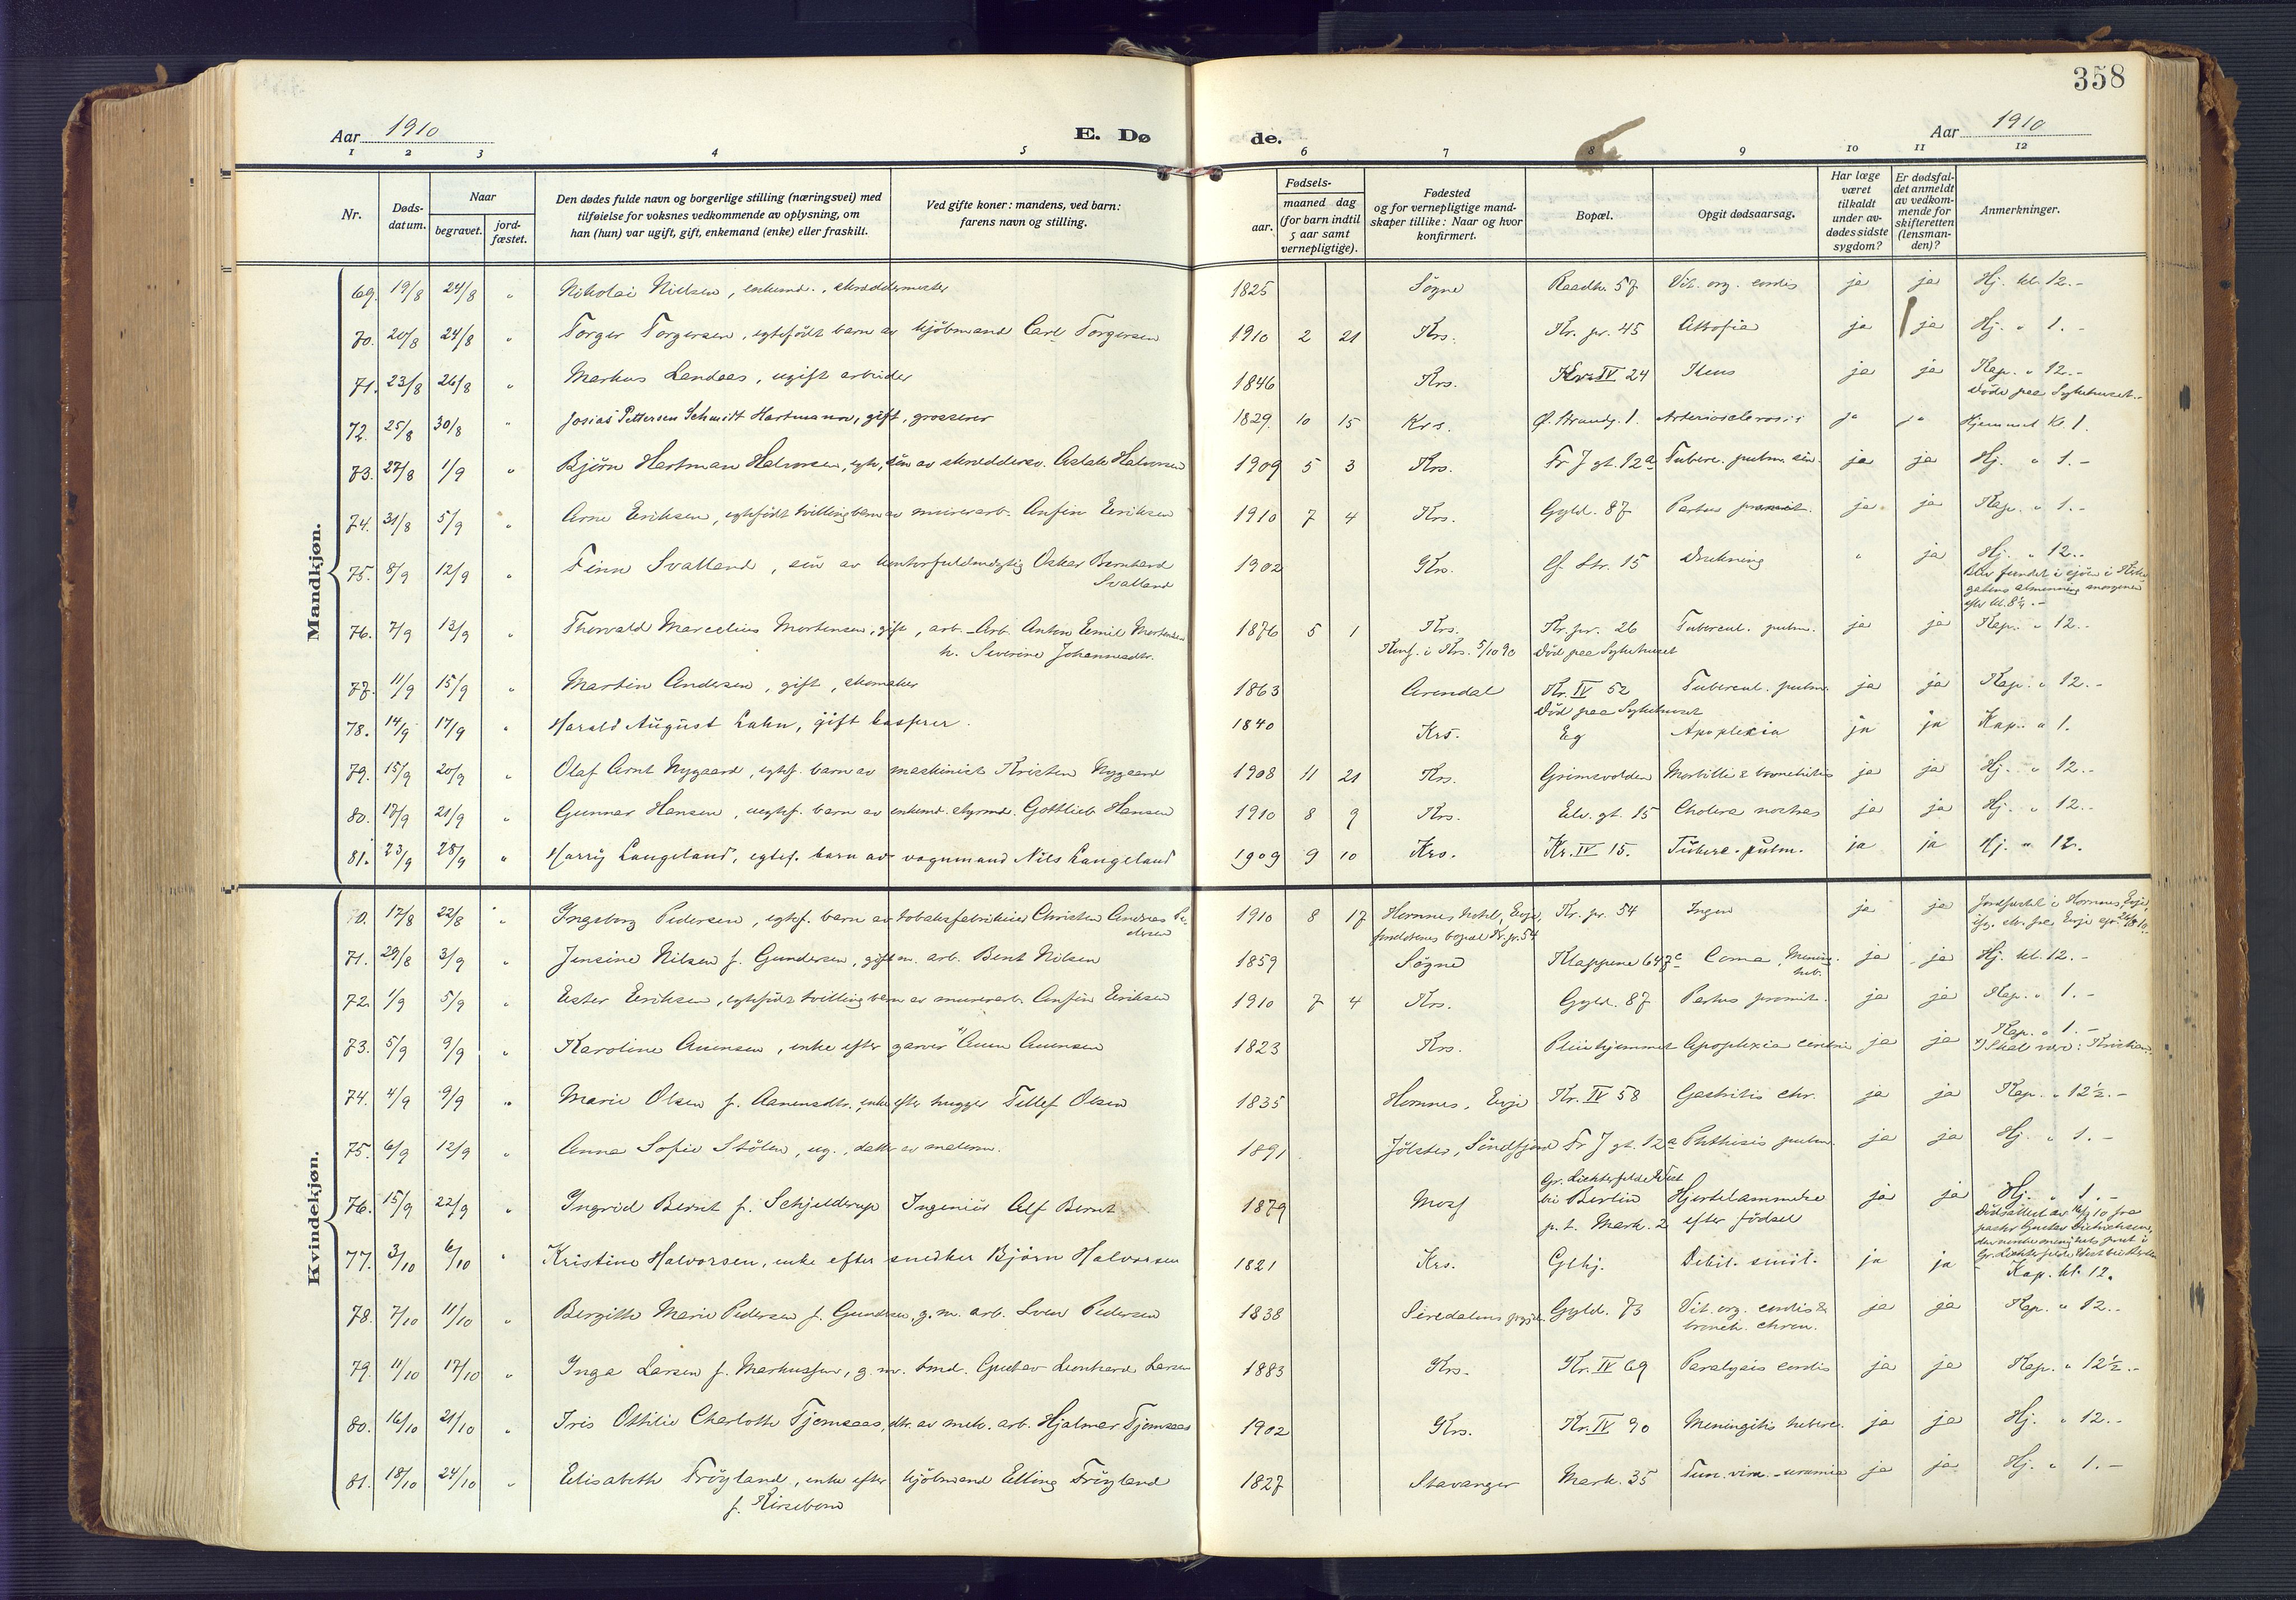 358
Aar 1910
E. Dø
de.
Aar 1910
1 2 3 4 5 6 7 8 9 10 11 12
Nr.
Døds-
datum.
Naar
begravet.
jord-
fæstet.
Den dødes fulde navn og borgerlige stilling (næringsvei) med
tilføielse for voksnes vedkommende av oplysning, om
han (hun) var ugift, gift, enkemand (enke) eller fraskilt.
Ved gifte koner: mandens, ved barn:
farens navn og stilling.
Fødsels-
aar.
maaned dag
(for barn indtil
5 aar samt
vernepligtige).
Fødested
og for vernepligtige mand-
skaper tillike: Naar og hvor
konfirmert.
Bopæl.
Opgit dødsaarsag.
Har læge
været
tilkaldt
under av-
dødes sidste
sygdom?
Er dødsfal-
det anmeldt
av vedkom-
mende for
skifteretten
(lensman-
den)?
Anmerkninger.
Mandkjøn.
69. 19/8 24/8 " Nikolai Nielsen, enkemd., skreddermester 1825 Søgne Raadh. 57 Vit. org. cordis ja ja Hj. kl. 12.-
70. 20/8 24/8 " Torger Torgersen, egtefødt barn av kjøbmand Carl Torgersen 1910 2 21 Krs. Kr. pr. 45 ja ja Hj. " 1.-
71. 23/8 26/8 " Markus Landaas, ugift arbeider 1846 Krs. Kr. IV 24 Ileus ja ja Kap. " 12.-
Døde paa Sykehuset.-
72. 25/8 30/8 " Josias Pettersen Schmidt Hartmann, gift, grosserer 1829. 10 15 Krs. Ø. Strandg. 1. Arteriosclerosis ja ja Hjemmet Kl. 1.
73. 27/8 1/9 " Bjørn Hartman Halvorsen, egte, søn av skreddersv. Aslak Halvorsen 1909 5 3 Krs. Fr J gt. 12a Tuberc. pulm. ja ja Hj. " 1.-
74. 31/8 5/9 " Arne Eriksen, egtefødt tvillingbarn av murerarb. Anfin Eriksen 1910 7 4 Krs. Gyld. 87 Partus ja ja Kap. " 1.-
75. 8/9 12/9 " Finn Svalland, søn av kontorfuldmegtig Oskar Bernhard
Svalland 1902 Krs. Ø. Str. 15 Drukning " ja Hj. " 12.-
Blev fundet i sjøen i Kirke
gatens almenning morgenen
efter kl. 8¼.-
76. 7/9 13/9 " Thorvald Marcelius Mortensen, gift, arb. Arb. Anton Emil Mortensen
h. Severine Johannesdtr. 1876 5 1 Krs. Kr. pr. 26 Tubercul. pulm. ja ja Kap. " 12.-
Konf. i Krs. 5/10 90 Død paa Sykehuset
77. 11/9 15/9 " Martin Andersen, gift, skomaker 1863 Arendal Kr. IV 52 Tubercul. pulm. ja ja Kap. " 12.-
Død paa Sykehuset
78. 14/9 17/9 " Harald August Lahn, gift kasserer. 1840 Krs. Eg Apoplexia ja ja Kap. " 1.
79. 15/9 20/9 " Olaf Arnt Nygaard, egtef. barn av maskinist Kristen Nygaard 1908 11 21 Krs. Grimsvolden Morbilli & bronchitis ja ja Hj. " 12.-
80. 17/9 21/9 " Gunnar Hansen, uegtef. barn av enkemd. styrmd. Gottlieb Hansen 1910 8 9 Krs. Elv. gt. 15 Cholera nostras ja ja Hj. " 12.-
81. 23/9 28/9 " Harry Langeland, egtef. barn av vognmand Nils Langeland 1909 9 10 Krs. Kr. IV 15. Tuberc. pulm. ja ja Hj. " 12.
Kvindekjøn.
70. 17/8 22/8 " Ingeborg Pedersen, egtef. barn av tobaksfabrikeier Christen Andreas Pe-
dersen 1910 8 17 Hornnes hotel, Evje, Kr. pr. 54 Ingen ja ja Jordfæstet i Hornnes, Evje,
forældrenes bopæl Kr. pr. 54
71. 29/8 3/9 " Jensine Nilsen f. Gundersen, gift m. arb. Bent Nilsen 1859 Søgne Klappene 647c Coma, Mening.
tub. ja ja Hj. kl. 12.-
72. 1/9 5/9 " Ester Eriksen, egtefødt tvillingbarn av murerarb. Anfin Eriksen 1910 7 4 Krs. Gyld. 87 Partus ja ja Kap. " 1.-
73. 5/9 9/9 " Karoline Aunnsen, enke efter garver Aunnsen 1823 Krs. Pleiehjemmet Apoplexia cerebri ja ja Kap. " 1.-
Skal være: Kristian.
74. 4/9 9/9 " Marie Olsen f. Aanensdtr. enke efter hugger Tellef Olsen 1835 Hornnes, Evje Kr. IV 58 Gastritis chr. ja ja Kap. " 12½.-
75. 6/9 12/9 " Anna Sofie Stölen, ug., datter av 1891 Jölster, Söndfjord Fr J gt. 12a Phthisis pulm. ja ja Hj. " 1.-
76. 15/9 22/9 " Ingrid Bernt f. Schjelderup Ingeniør Alf Bernt 1879 Moss Gr. Lichterfelde West
bei Berlin
p. t. Mark. 2 Hjertelammelse
efter fødsel ja ja Hj. " 1.-
Dødsattest av 16/9 10 fra
pastor
Gr. Lichterfelde West bei Berlin
77. 3/10 6/10 " Kristine Halvorsen, enke efter snedker Björn Halvorsen 1821 Krs. Glhj. Debil. senil. ja ja Kap. kl. 12.
78. 7/10 11/10 " Bergitte Marie Pedersen f. Gundersen, g. m. arb. Sven Pedersen 1838 Siredalens prgjd. Gyld. 73 Vit. org. cordis &
bronch. chron. ja ja Kap. " 12.-
79. 11/10 17/10 " Inga Larsen f. Markussen, g. m. tmd. Gustav Leonhard Larsen 1883 Krs. Kr. IV 69 Paralysis cordis ja ja Kap. " 12½.-
80. 16/10 21/10 " Iris Ottilie Charlotte Tjomsaas, dtr. av mek. arb. Hjalmar Tjomsaas 1902 Krs. Kr. IV 90 Meningitis tuberc. ja ja Hj. " 12.-
81. 18/10 24/10 " Elisabeth Fröyland, enke efter kjøbmand Elling Fröyland
f. Kirsebom 1827 Stavanger Mark. 35 uræmia ja ja Hj. " 1.-